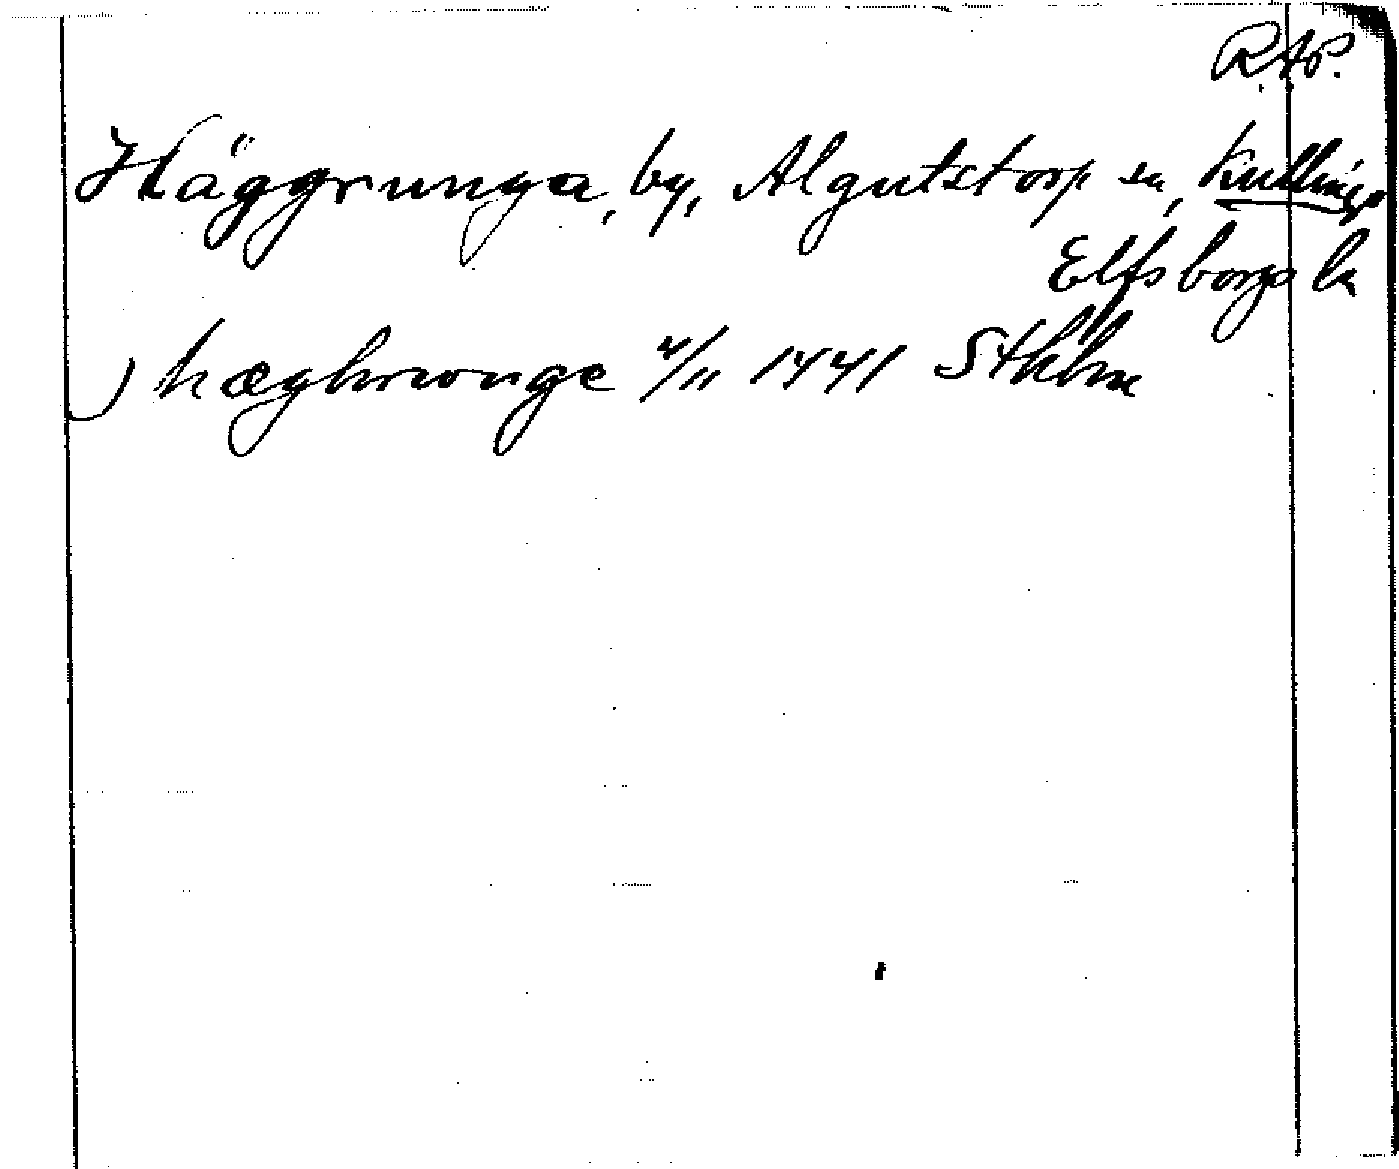 R.Ap.
Häggrunga, by, Algutstorp sn, Kullings
Elfsborgs ln
) hæghrwnge 4/11 1441 Sthlm